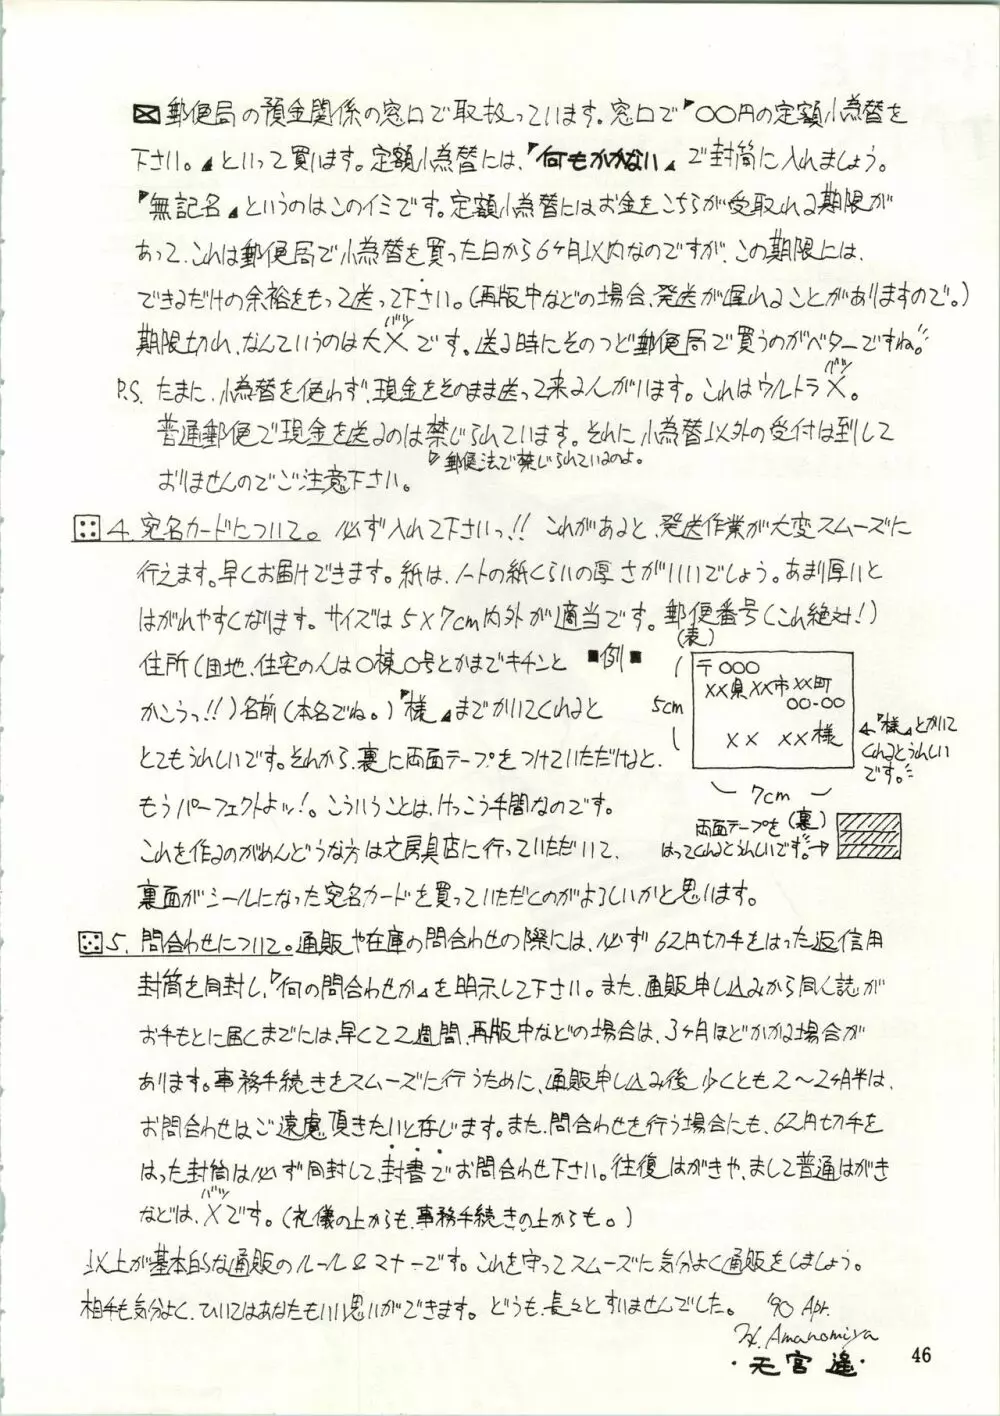 郵便局の預金関係の窓口で取扱っています。窓口で『〇〇円の定額小為替を
下さい。』といって買います。定額小為替には、『何もかかない』で封筒に入れましょう。
『無記名』というのはこのイミです。定額小為替にはお金をこちらが受取れる期限が
あって、これは郵便局で小為替を買った日から6ヶ月以内なのですが、この期限には、
できるだけの余裕をもって送って下さい。(再版中などの場合、発送が遅れることがありますので。)
期限切れ、なんていうのは大×バツです。送る時にそのつど郵便局で買うのがベターですね。
P.S. たまに、小為替を使わず、現金をそのまま送って来る人がいます。これはウルトラ×バツ。
普通郵便で現金を送るのは禁じられています。それに小為替以外の受付は到して
郵便法で禁じられているのよ。
おりませんのでご注意下さい。
4. 宛名カードについて。必ず入れて下さいっ!! これがあると、発送作業が大変スムーズに
行えます。早くお届けできます。紙は、ノートの紙くらいの厚さがいいでしょう。あまり厚いと
はがれやすくなります。サイズは5×7cm内外が適当です。郵便番号(これ絶対!)
住所(団地、住宅の人は〇棟〇号とかまでキチンと
かこうっ!!)名前(本名でね。)『様』までかいてくれると
とてもうれしいです。それから、裏に両面テープをつけていただけると、
もうパーフェクトよッ!。こういうことは、けっこう手間なのです。
これを作るのがめんどうな方は文房具店に行っていただいて、
裏面がシールになった宛名カードを買っていただくのがよろしいかと思います。
■例■
(表)
5cm
〒〇〇〇
××県××市××町
〇〇-〇〇
×× ××様
←『様』とかいて
くれるとうれしい
です。
7cm
両面テープを(裏)
はってくれるとうれしいです。→
5. 問合わせについて。通販や在庫の問合わせの際には、必ず62円切手をはった返信用
封筒を同封し、『何の問合わせか』を明示して下さい。また、通販申し込みから同人誌が
お手もとに届くまでには、早くて2週間、再版中などの場合は、3ヶ月ほどかかる場合が
あります。事務手続きをスムーズに行うために、通販申し込み後、少くとも2〜2ヶ月半は、
お問合わせはご遠慮頂きたいと存じます。また、問合わせを行う場合にも、62円切手を
はった封筒は必ず同封して、封書でお問合わせ下さい。往復はがきや、まして普通はがき
などは、×バツです。(礼儀の上からも、事務手続きの上からも。)
以上が基本的な通販のルール&マナーです。これを守ってスムーズに気分よく通販をしましょう。
相手も気分よく、ひいてはあなたもいい思いができます。どうも、長々とすいませんでした。 '90 Apr.
H. Amanomiya
・天宮遥・
46